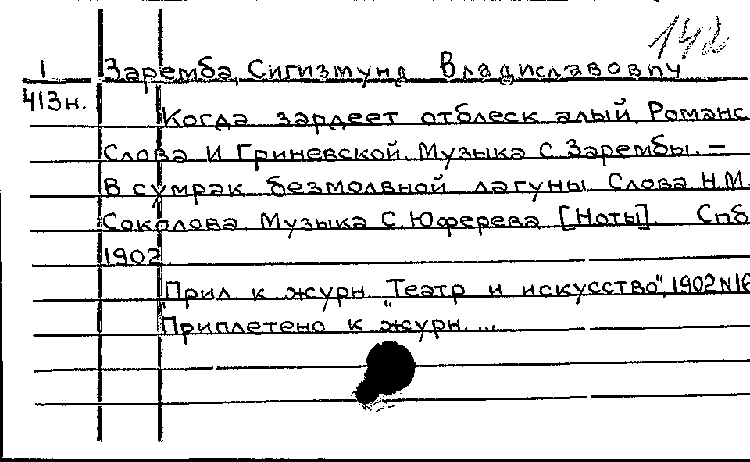 142
1 Заремба, Сигизмунд Владиславович
413н.
Когда зардеет отблеск алый. Романс
Слова И Гриневской. Музыка С. Зарембы. —
В сумрак безмолвной лагуны Слова Н.М.
Соколова Музыка С. Юферева [Ноты]. Спб
1902
Прил к журн „Театр и искусство", 1902 N16
Приплетено к журн....